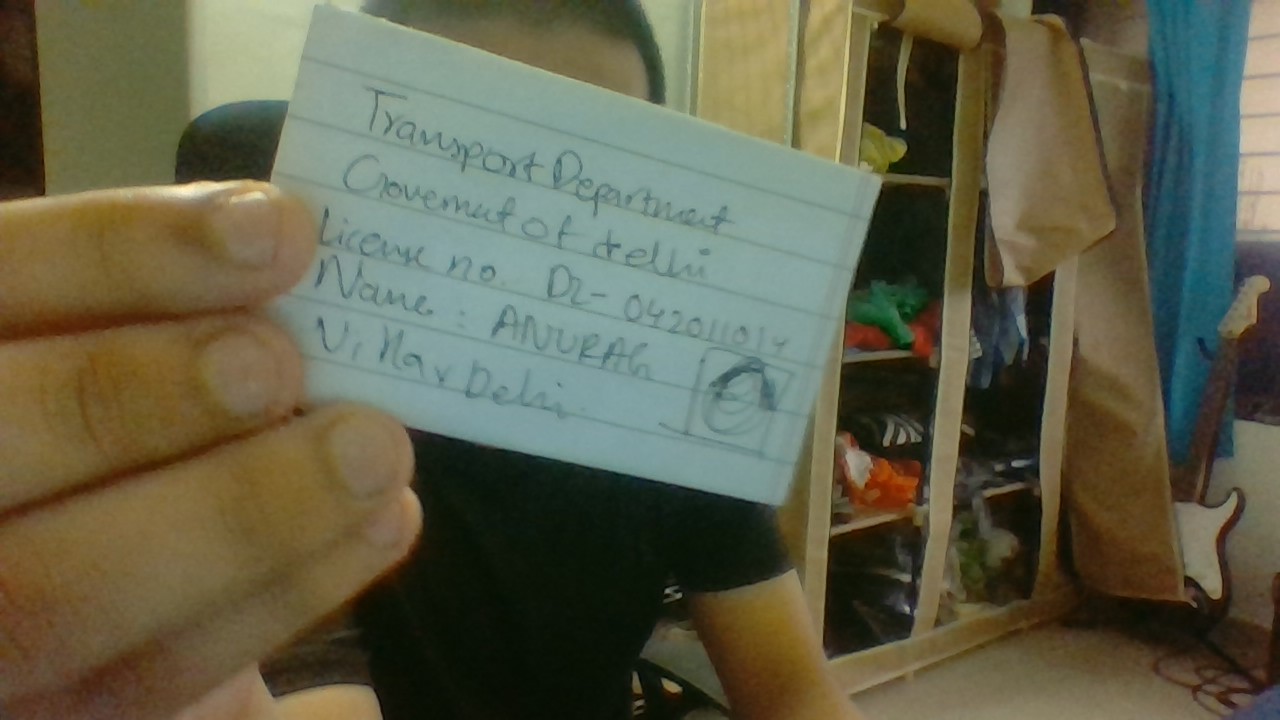 Transport Department
Governmut of delhi
License no. DL-042011014
Name : ANURAG
Vihar Delhi